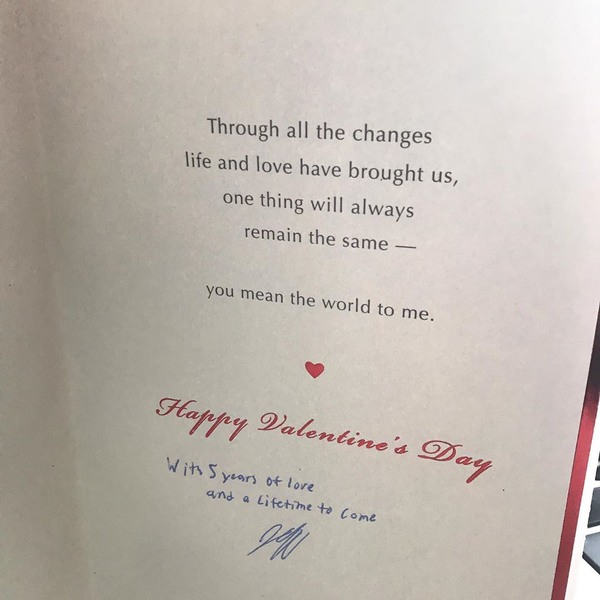 Through all the changes
life and love have brought us,
one thing will always
remain the same —
you mean the world to me.
Happy Valentine's Day
With 5 years of love
and a Lifetime to come